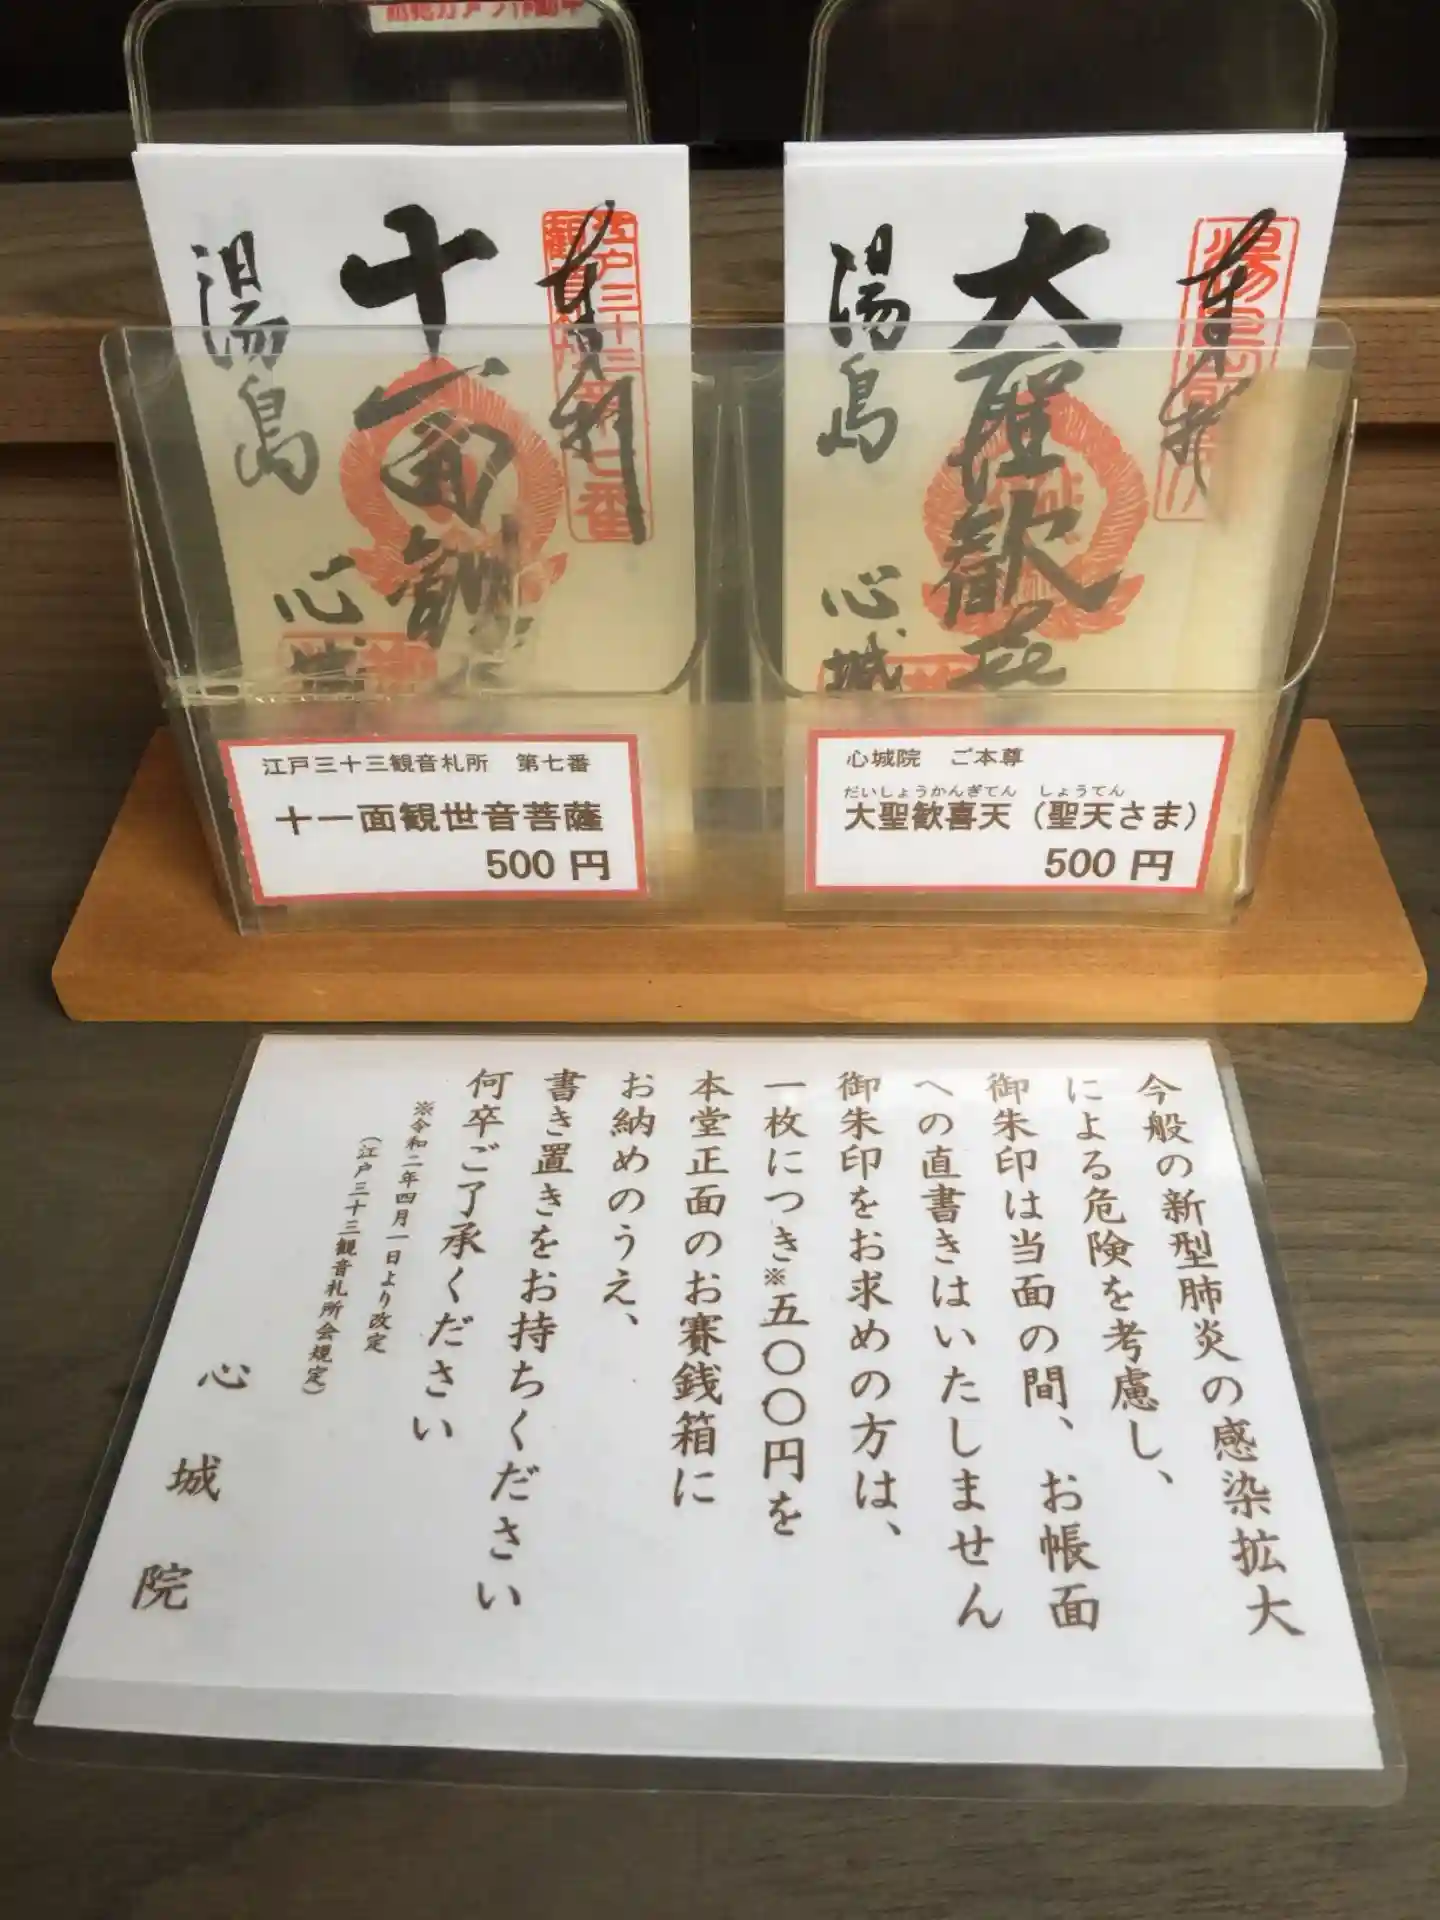 湯島
心城
十一面観
奉拝
江戸三十三
第七番
湯島
心城
大聖歓喜
奉拝
江戸三十三観音札所 第七番
十一面観世音菩薩
500 円
心城院 ご本尊
だいしょうかんぎてん しょうてん
大聖歓喜天（聖天さま）
500 円
今般の新型肺炎の感染拡大
による危険を考慮し、
御朱印は当面の間、お帳面
への直書きはいたしません
御朱印をお求めの方は、
一枚につき※五〇〇円を
本堂正面のお賽銭箱に
お納めのうえ、
書き置きをお持ちください
何卒ご了承ください
※令和二年四月一日より改定
（江戸三十三観音札所会規定）
心城院